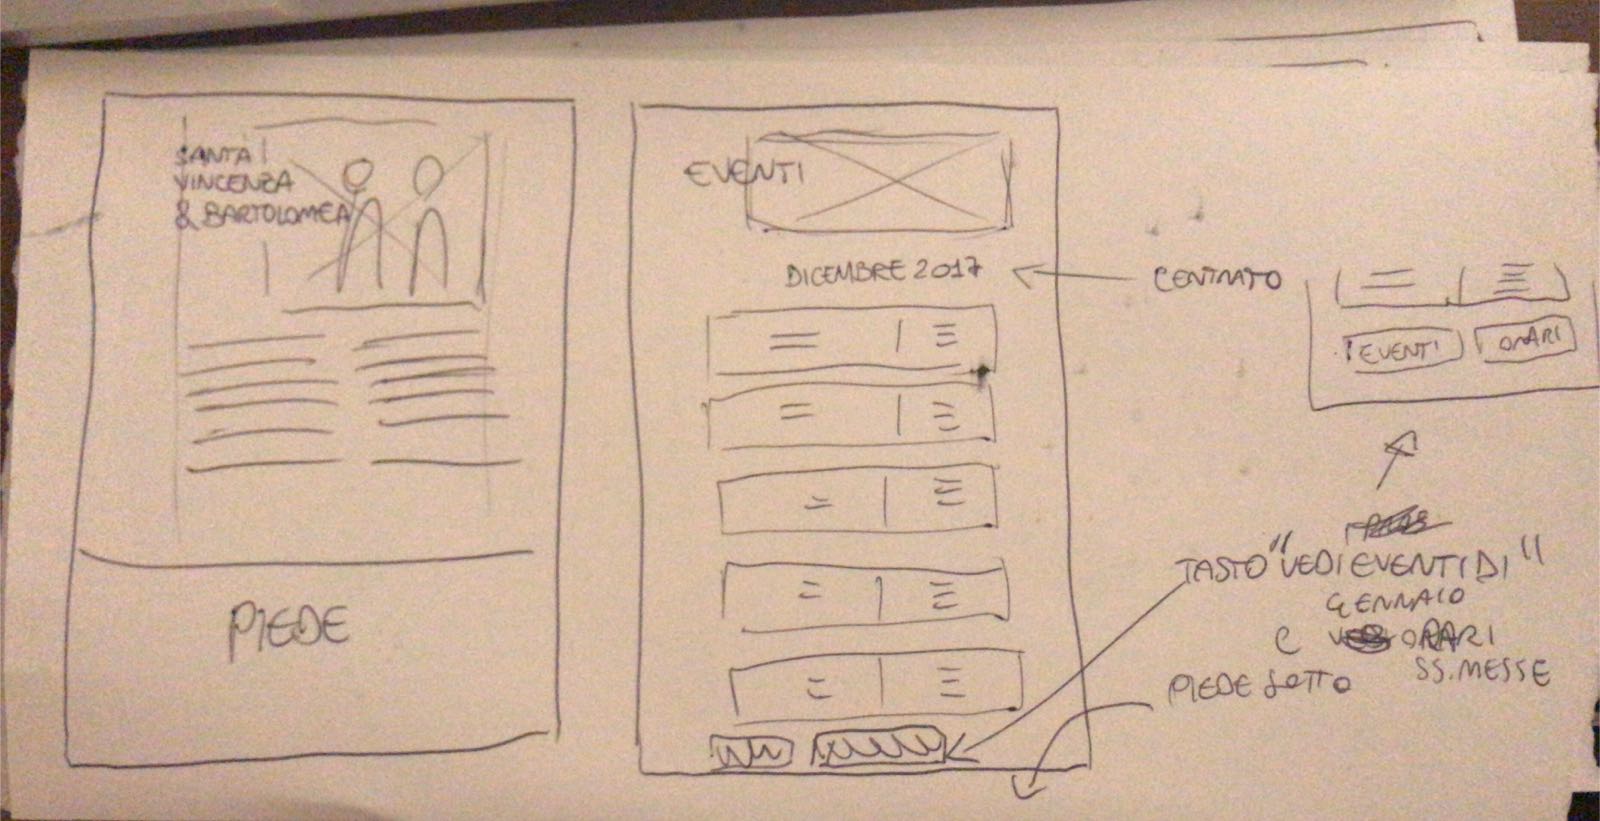 SANTA
VINCENZA
& BARTOLOMEA
PIEDE
EVENTI
DICEMBRE 2017
CENTRATO
EVENTI
ORARI
TASTO "VEDI EVENTI DI"
GENNAIO
E ORARI
SS. MESSE
PIEDE SOTTO